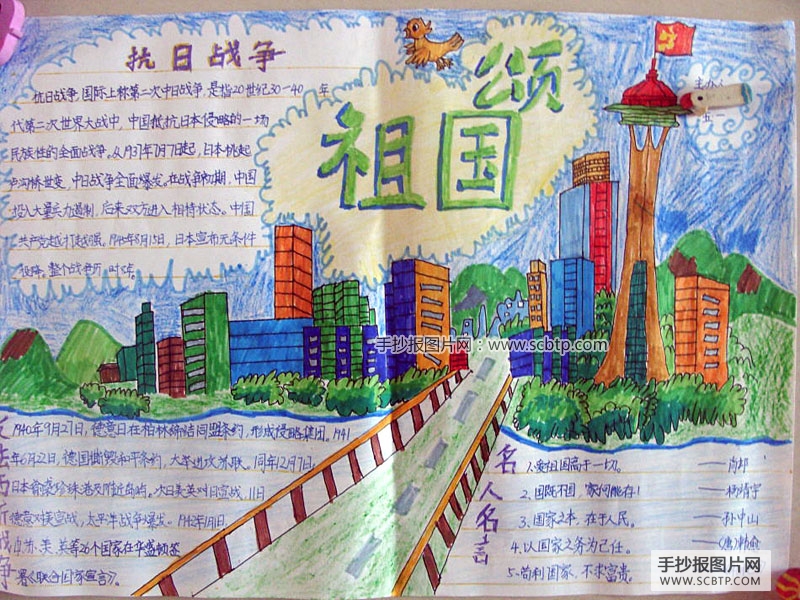 抗日战争
抗日战争,国际上称第二次中日战争,是指20世纪30—40年
代第二次世界大战中,中国抵抗日本侵略的一场
民族性的全面战争。从1937年7月7日起,日本挑起
卢沟桥事变,中日战争全面爆发。在战争初期,中国
投入大量兵力遏制,后来双方进入相持状态。中国
共产党越打越强,1945年8月15日,日本宣布无条件
投降。整个战争历时
颂
祖国
主办人
手抄报图片网:www.scbtp.com
反法西斯战争
1940年9月27日,德意日在柏林缔结同盟条约,形成侵略集团。1941
年6月22日,德国撕毁和平条约,大举进攻苏联。同年12月7日,
日本偷袭珍珠港及附近岛屿。次日美英对日宣战,11日
德意对美宣战,太平洋战争爆发。1942年1月1日,
中、苏、美、英等26个国家在华盛顿签
署《联合国家宣言》。
名人名言
1.爱祖国高于一切。——肖邦
2.国既不国,家何能存!——杨靖宇
3.国家之本,在于人民。——孙中山
4.以国家之务为己任。——
5.苟利国家,不求富贵。
手抄报图片网
WWW.SCBTP.COM